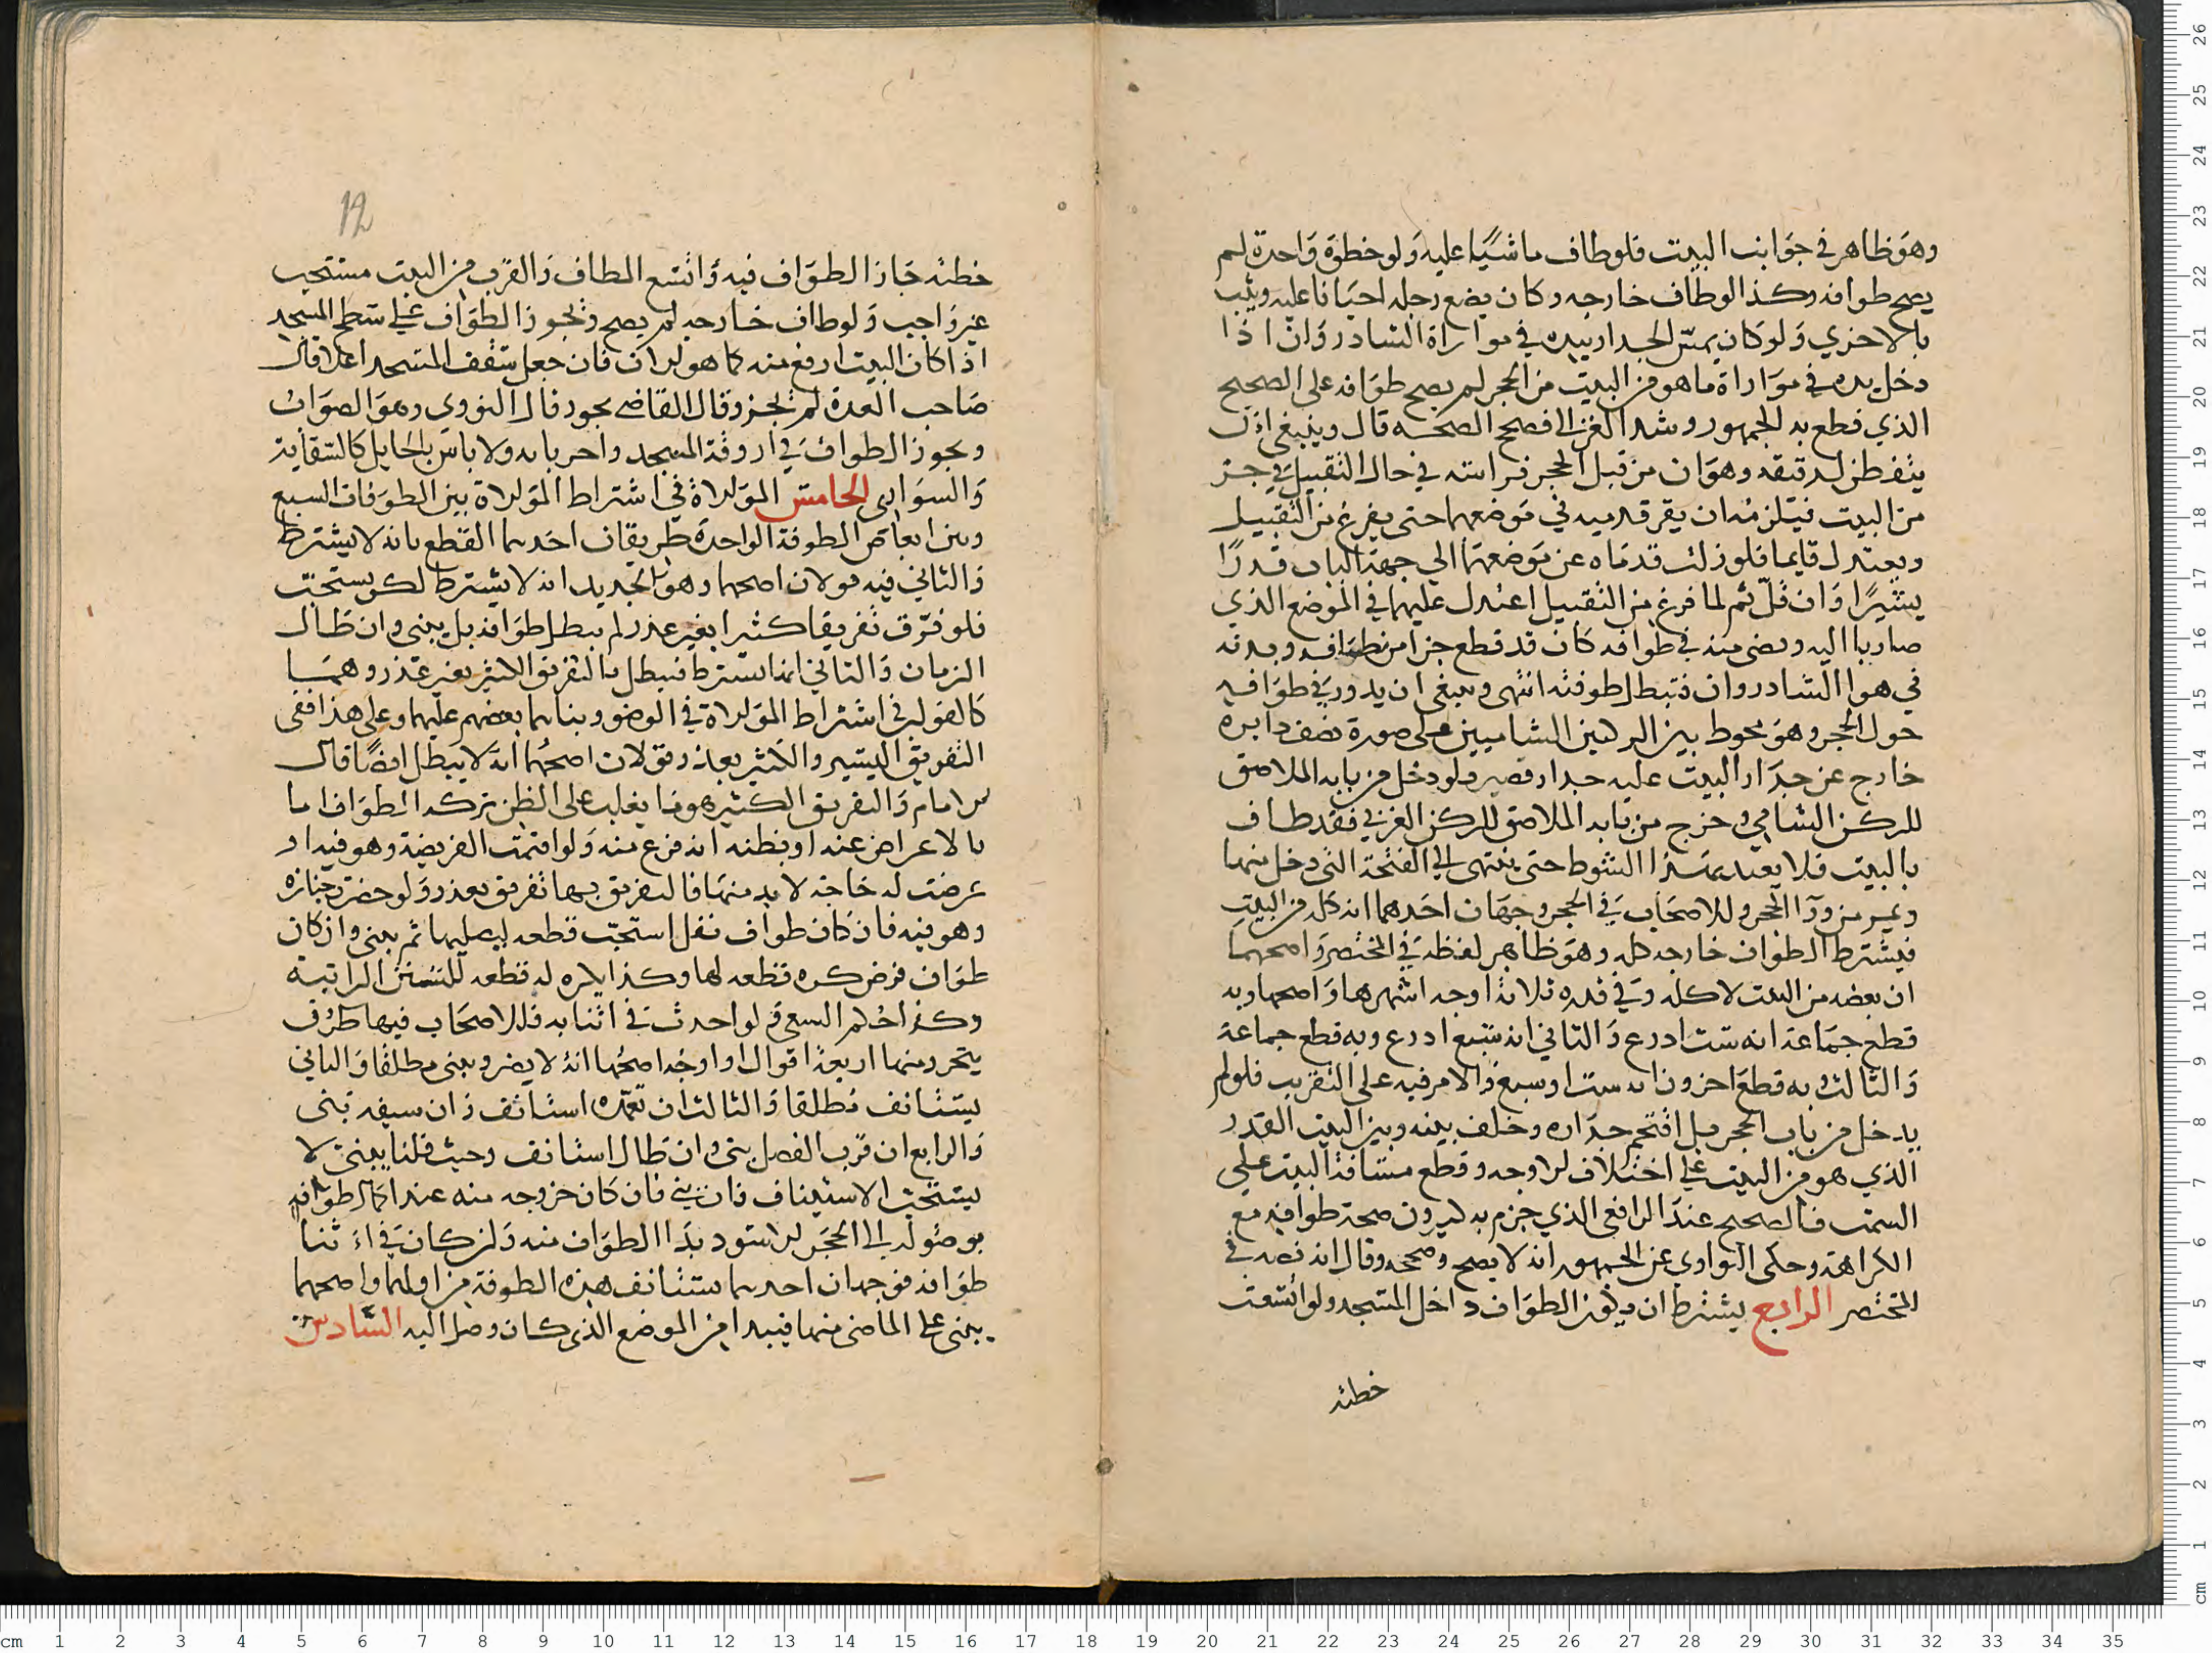 وهو ظاهر في جوانب البيت فلو طاف ماشيا عليه ولو خطوة واحدة لم
يصح طوافه وكذا لو طاف خارجه وكان يضع رجله احيانا عليه ويثب
بالاخري ولو كان يمس الجدار بيده في موازاة الشاذروان اذا
دخل يده في موازاة ما هو من البيت من الحجر لم يصح طوافه على الصحيح
الذي قطع به الجمهور وشد الغزالي فصحح الصحه قال وينبغي ان
يتفطن لدقيقه وهو ان من قبل الحجر فراسه في حال التقبيل في جز
من البيت فيلزمه ان يقر قدميه في موضعهما حتى يفرغ من التقبيل
ويعتدل قايما فلو زلت قدماه عن موضعهما الى جهة الباب قدرا
يسيرا وان قل ثم لما فرغ من التقبيل اعتدل عليهما في الموضع الذي
صارا اليه ومضى منه في طوافه كان قد قطع جزا من طوافه وبدنه
في هوا الشادروان فتبطل طوفته انتهى وينبغي ان يدور في طوافه
حول الحجر وهو محوط بين الركنين الشاميين على صورة نصف دايره
خارج عن جدار البيت عليه جدار قصير فلو دخل من بابه الملاصق
للركن الشامي وخرج من بابه الملاصق للركن الغربي فقد طاف
بالبيت فلا يعتد بهذا الشوط حتى ينتهى الى الفتحة التى دخل منها
ويمر من ورا الحجر وللاصحاب في الحجر وجهان احدهما انه كله من البيت
فيشترط الطواف خارجه كله وهو ظاهر لفظه في المختصر واصحهما
ان بعضه من البيت لا كله وفي قدره ثلاثة اوجه اشهرها واصحها وبه
قطع جماعة انه ست ادرع والثاني انه سبع ادرع وبه قطع جماعة
والثالث وبه قطع اخرون انه ست او سبع والامر فيه على التقريب فلو لم
يدخل من باب الحجر بل اقتحم جداره وخلف بينه وبين البيت القدر
الذي هو من البيت على اختلاف الاوجه وقطع مسافة البيت على
السمت فالصحيح عند الرافعي الذي جزم به كثيرون صحة طوافه مع
الكراهة وحكى النواوى عن الجمهور انه لا يصح وصححه وقال انه نصه في
المختصر الرابع يشترط ان يكون الطواف داخل المسجد ولو اتسعت
خطته
12
خطته جاز الطواف فيه واتسع المطاف والقرب من البيت مستحب
غير واجب ولو طاف خارجه لم يصح ويجوز الطواف على سطح المسجد
اذا كان البيت ارفع منه كما هو الان فان جعل سقف المسجد اعلا قال
صاحب العدة لم يجز وقال القاضي يجوز قال النووي وهو الصواب
ويجوز الطواف في اروقة المسجد واخرياته ولا باس بالحايل كالسقاية
والسوارى الخامس الموالاة في اشتراط الموالاة بين الطوفات السبع
وبين ابعاض الطوفة الواحدة طريقان احدهما القطع بانه لا يشترط
والثاني فيه قولان اصحهما وهو الجديد انه لا يشترط لكن يستحب
فلو فرق تفريقا كثيرا بغير عذر لم يبطل طوافه بل يبنى وان طال
الزمان والثاني انها يشترط فيبطل بالتفريق الكثير بغير عذر وهما
كالقولين في اشتراط الموالاة في الوضو وبناهما بعضهم عليهما وعلى هذا ففى
التفريق اليسير والكثير بعذر قولان اصحهما انه لا يبطل ايضا قال
الامام والتفريق الكثير هو ما يغلب على الظن تركه الطواف اما
بالاعراض عنه او بظنه انه فرغ منه ولو اقيمت الفريضة وهو فيه او
عرضت له حاجة لا بد منها فالتفريق بهما تفريق بعذر ولو حضرت جنازه
وهو فيه فان كان طواف نفل استحب قطعه ليصليها ثم يبنى وان كان
طواف فرض كره قطعه لها وكذا يكره له قطعه للسنن الراتبة
وكذا حكم السعي ولو احدث في اثنايه فللاصحاب فيها طرف
يتحرر منها اربعة اقوال او اوجه اصحها انه لا يضر ويبنى مطلقا والثاني
يستانف مطلقا والثالث ان تعمده استانف وان سبقه بنى
والرابع ان قرب الفصل بنى وان طال استانف وحيث قلنا يبنى لا
يستحب الاستيناف فان بني فان كان خروجه منه عند اكمال طوافه
بوصوله الى الحجر الاسود بدا الطواف منه وان كان في اثنا
طوافه فوجهان احدهما يستانف هذه الطوفة من اولها واصحهما
يبنى على الماضى منها فيبدا من الموضع الذي كان وصل اليه السادس